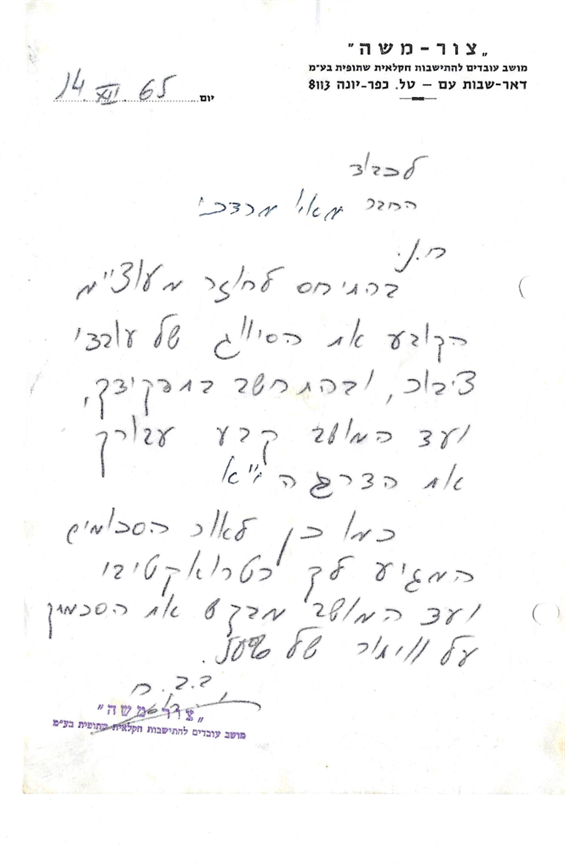 „צור-משה"
מושב עובדים להתישבות חקלאית שתופית בע״מ
דאר-שבות עם – טל. כפר-יונה 8113
יום 14.XII.65
לכבוד
החבר מאיו מרדכי
ח.נ.
בהתיחס לחוזר מעוצ״מ
הקובע את הסיווג של עובדי
ציבור, ובהתחשב בתפקידך,
ועד המושב קבע עבורך
את הדרגה י״א
כמו כן לאור הסכומים
המגיע לך רטרואקטיבי
ועד המושב מבקש את הסכמתך
על וויתור של 50%.
ב.ב.ח
„צור-משה"
מושב עובדים להתישבות חקלאית שתופית בע״מ